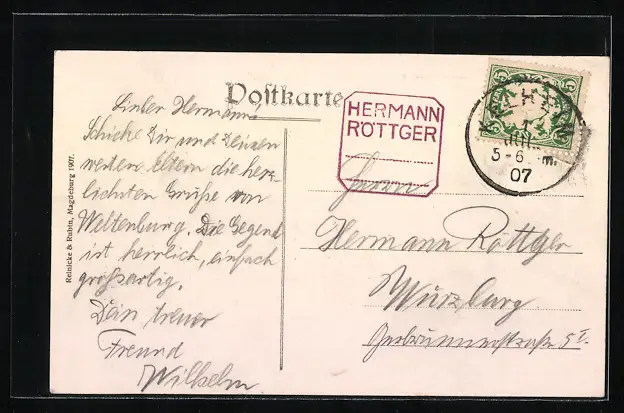 Postkarte
Lieber Hermann!
Schicke Dir und Deinen
werten Eltern die herz-
lichsten Grüße von
Weltenburg. Die Gegend
ist herrlich, einfach
großartig.
Dein treuer
Freund
Wilhelm
Reinicke & Rubin, Magdeburg 1907.
HERMANN
RÖTTGER
KELHEIM
5-6
07
Herrn
Hermann Röttger
Würzburg
5 I.